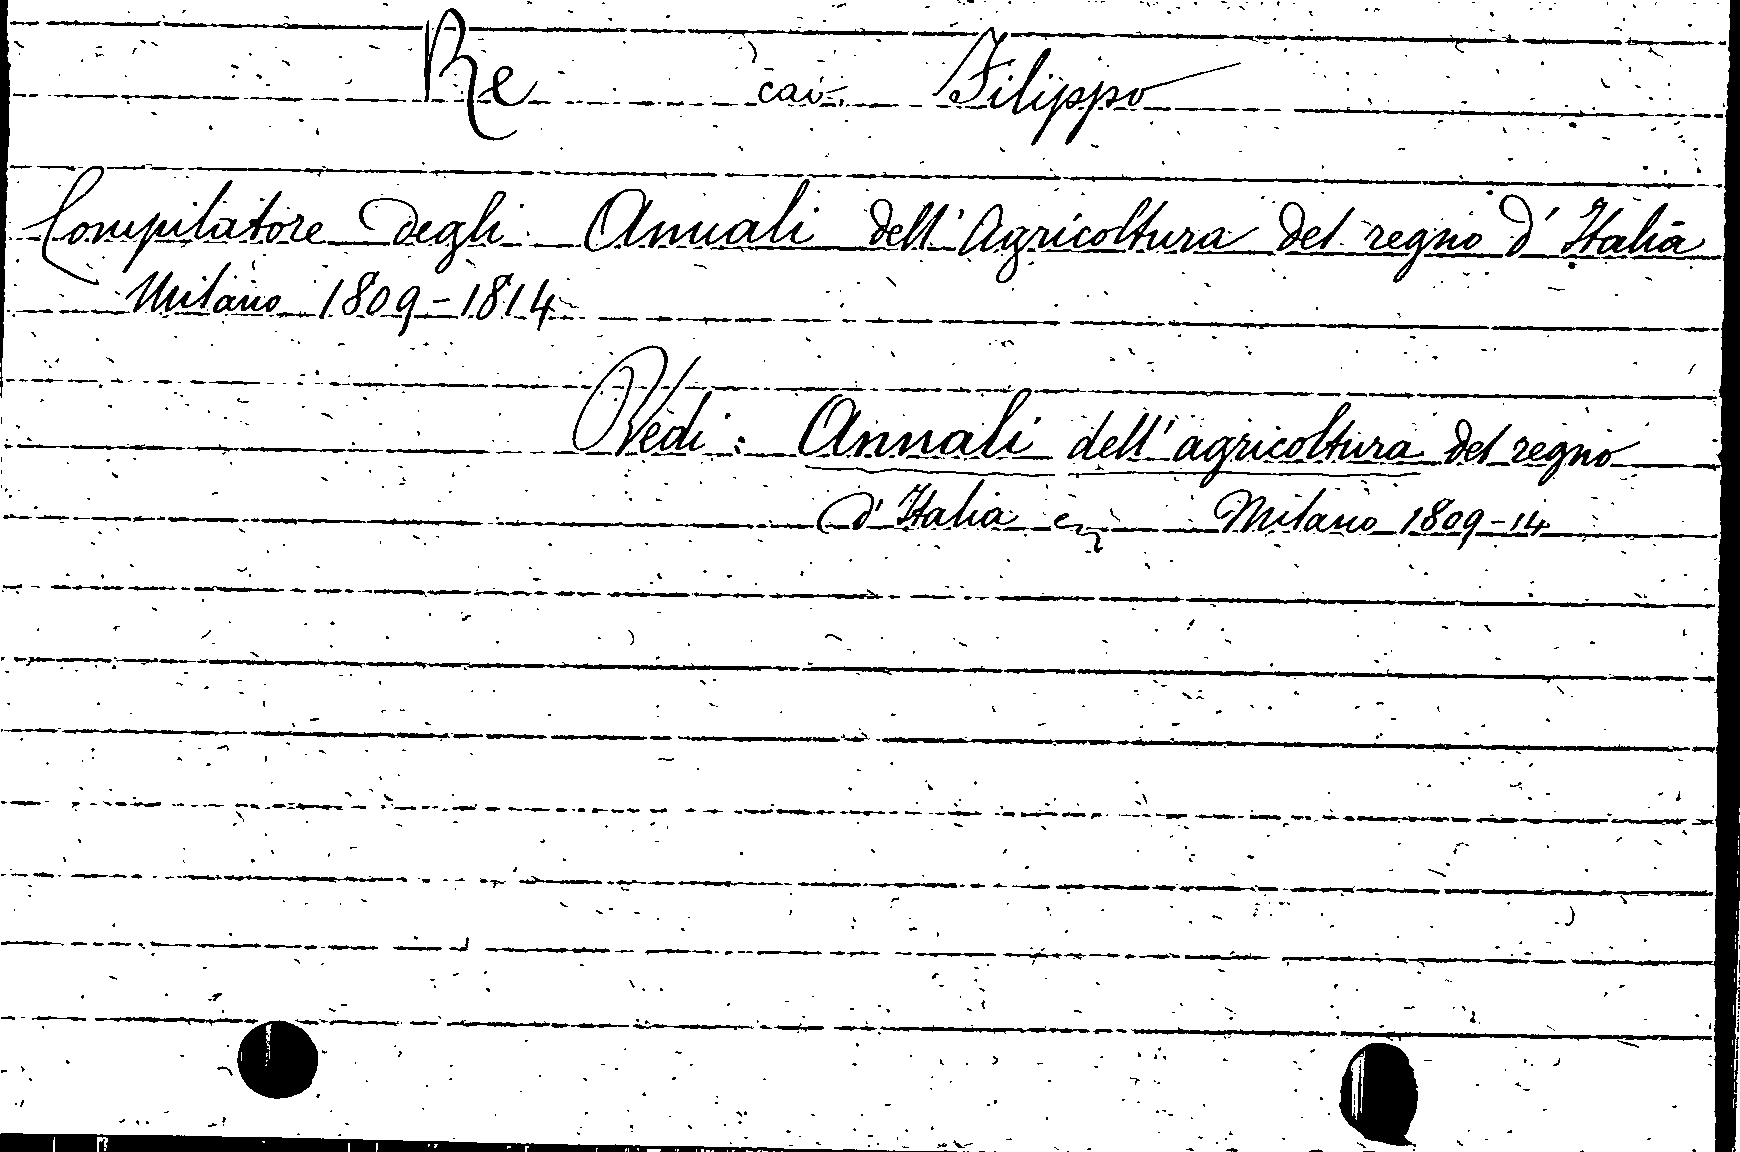 Re cav. Filippo
Compilatore degli Annali dell'Agricoltura del regno d'Italia
Milano 1809-1814
Vedi: Annali dell'agricoltura del regno
d'Italia Milano 1809-14